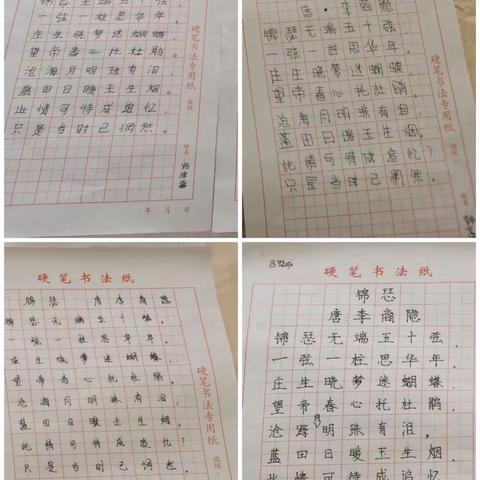 锦瑟无端五十弦,
一弦一柱思华年。
庄生晓梦迷蝴蝶
望帝春心托杜鹃
沧海月明珠有泪
蓝田日暖玉生烟
此情可待成追忆
只是当时已惘然。
硬笔书法专用纸
班级:
姓名
年 月 日
唐·李商隐
锦瑟无端五十弦,
一弦一柱思华年。
庄生晓梦迷蝴蝶
望帝春心托杜鹃
沧海月明珠有泪
蓝田日暖玉生烟。
此情可待成追忆?
只是当时已惘然。
硬笔书法专用纸
班级:
姓名
硬笔书法纸
锦瑟 唐李商隐
锦瑟无端五十弦,
一弦一柱思华年。
庄生晓梦迷蝴蝶,
望帝春心托杜鹃。
沧海月明珠有泪,
蓝田日暖玉生烟。
此情可待成追忆?
只是当时已惘然。
硬笔书法专用纸
班级:
硬笔书法纸
锦瑟
唐李商隐
锦瑟无端五十弦,
一弦一柱思华年。
庄生晓梦迷蝴蝶,
望帝春心托杜鹃。
沧海月明珠有泪,
蓝田日暖玉生烟。
此情可待成追忆
硬笔书法专用纸
班级: